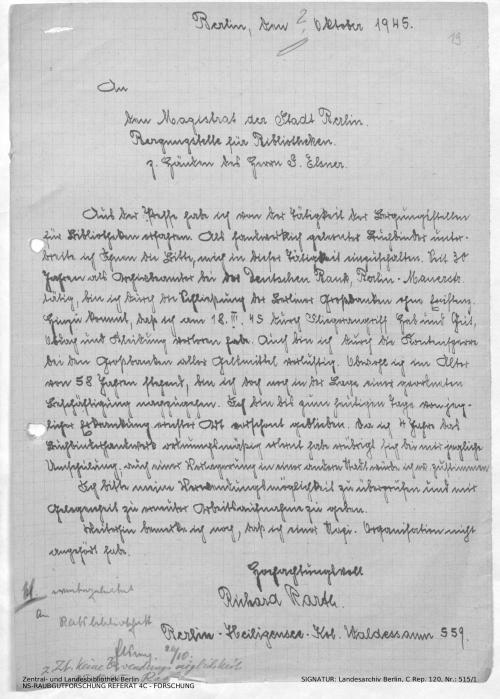 Berlin, den 2. Oktober 1945.
19
An
den Magistrat der Stadt Berlin.
Bergungsstelle für Bibliotheken.
z. Händen des Herrn Elsner.
Aus der Presse habe ich von der Tätigkeit der Bergungsstellen
für Bibliotheken erfahren. Als handwerklich gelernter Buchbinder unter-
breite ich Ihnen die Bitte, mich in dieser Tätigkeit einzuschalten. Seit 30
Jahren als Archivbeamter bei der Deutschen Bank, Berlin-Mauerstr.
tätig, bin ich durch die Schließung der Berliner Großbanken ohne
Hinzu kommt, daß ich am 18. 45 durch Fliegerangriff Hab und Gut,
und Kleidung verloren habe. Auch bin ich durch die Kontensperre
bei den Großbanken aller Geldmittel verlustig. Obwohl ich im Alter
von 58 Jahren stehend, bin ich doch noch in der Lage einer geordneten
Beschäftigung nachzugehen. Ich bin bis zum heutigen Tage von jeg-
licher Erkrankung ernster Art verschont geblieben. Da ich 4 Jahre das
Buchbinderhandwerk ordnungsmäßig erlernt habe erübrigt sich bei mir jegliche
Umschulung, auch einer Verlagerung in einer anderen Stadt würde ich zustimmen.
Ich bitte meine Verwendungsmöglichkeit zu überprüfen und mir
Gelegenheit zu erneuter Arbeitsaufnahme zu geben.
Weiterhin bemerke ich noch, daß ich einer Nazi-Organisation nicht
angehört habe.
Hochachtungsvoll
Richard Barth.
Berlin-Heiligensee-Kol. Waldessaum 559.
an Ratsbibliothek
z. Zt. keine Verwendungsmöglichkeit
Zentral- und Landesbibliothek Berlin
NS-RAUBGUTFORSCHUNG REFERAT 4C - FORSCHUNG
SIGNATUR: Landesarchiv Berlin, C Rep. 120, Nr.: 515/1